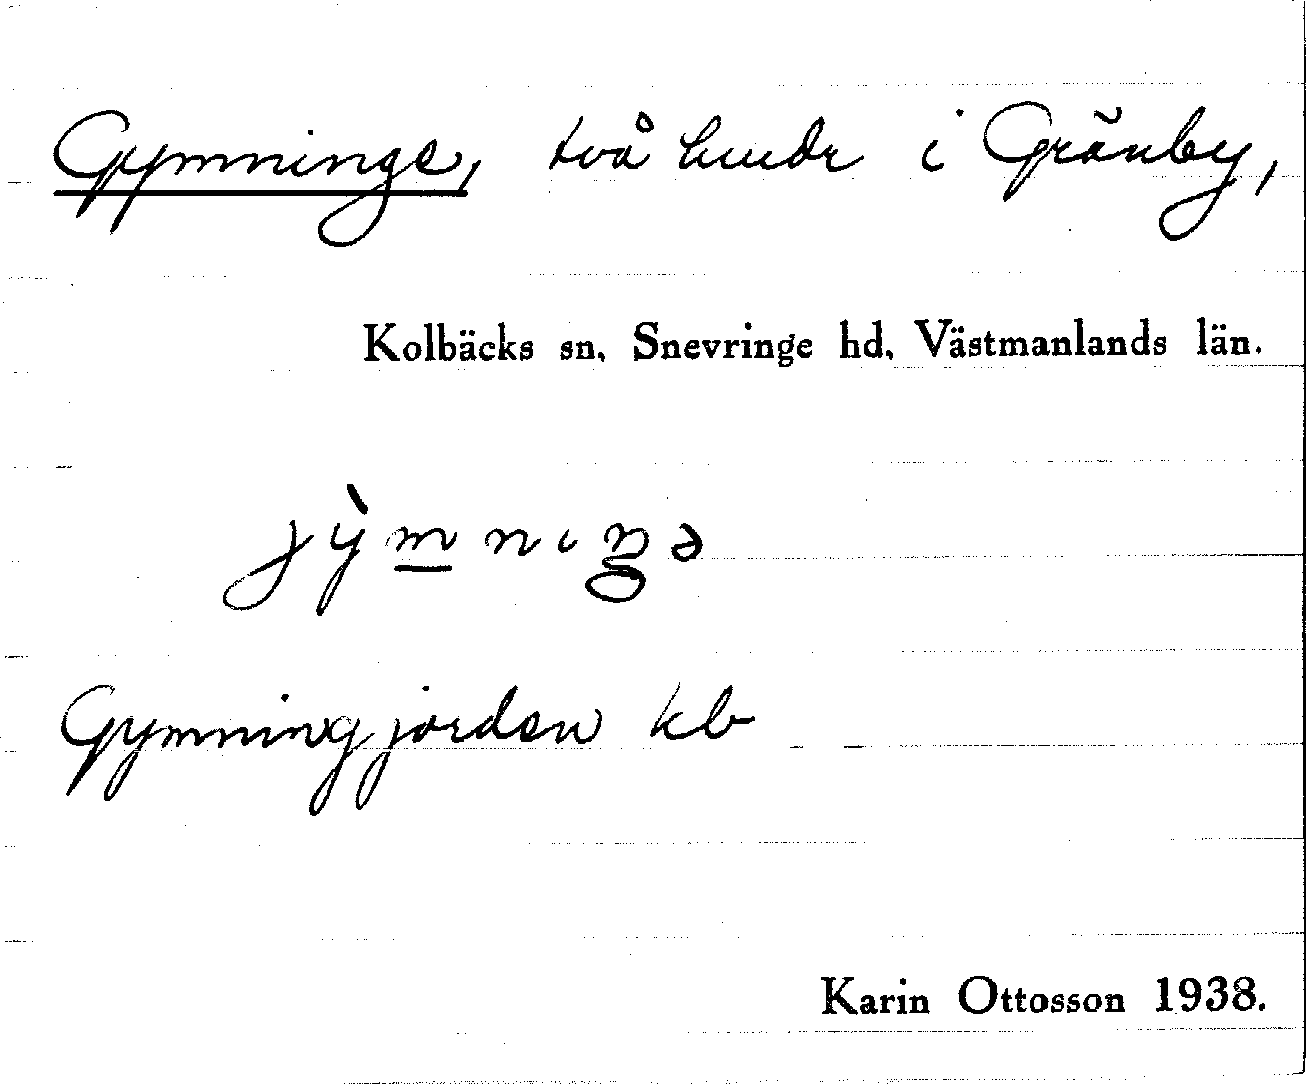 Gymninge, två lindr i Gränby,
Kolbäcks sn, Snevringe hd, Västmanlands län.
Gymningjorden kb
Karin Ottosson 1938.